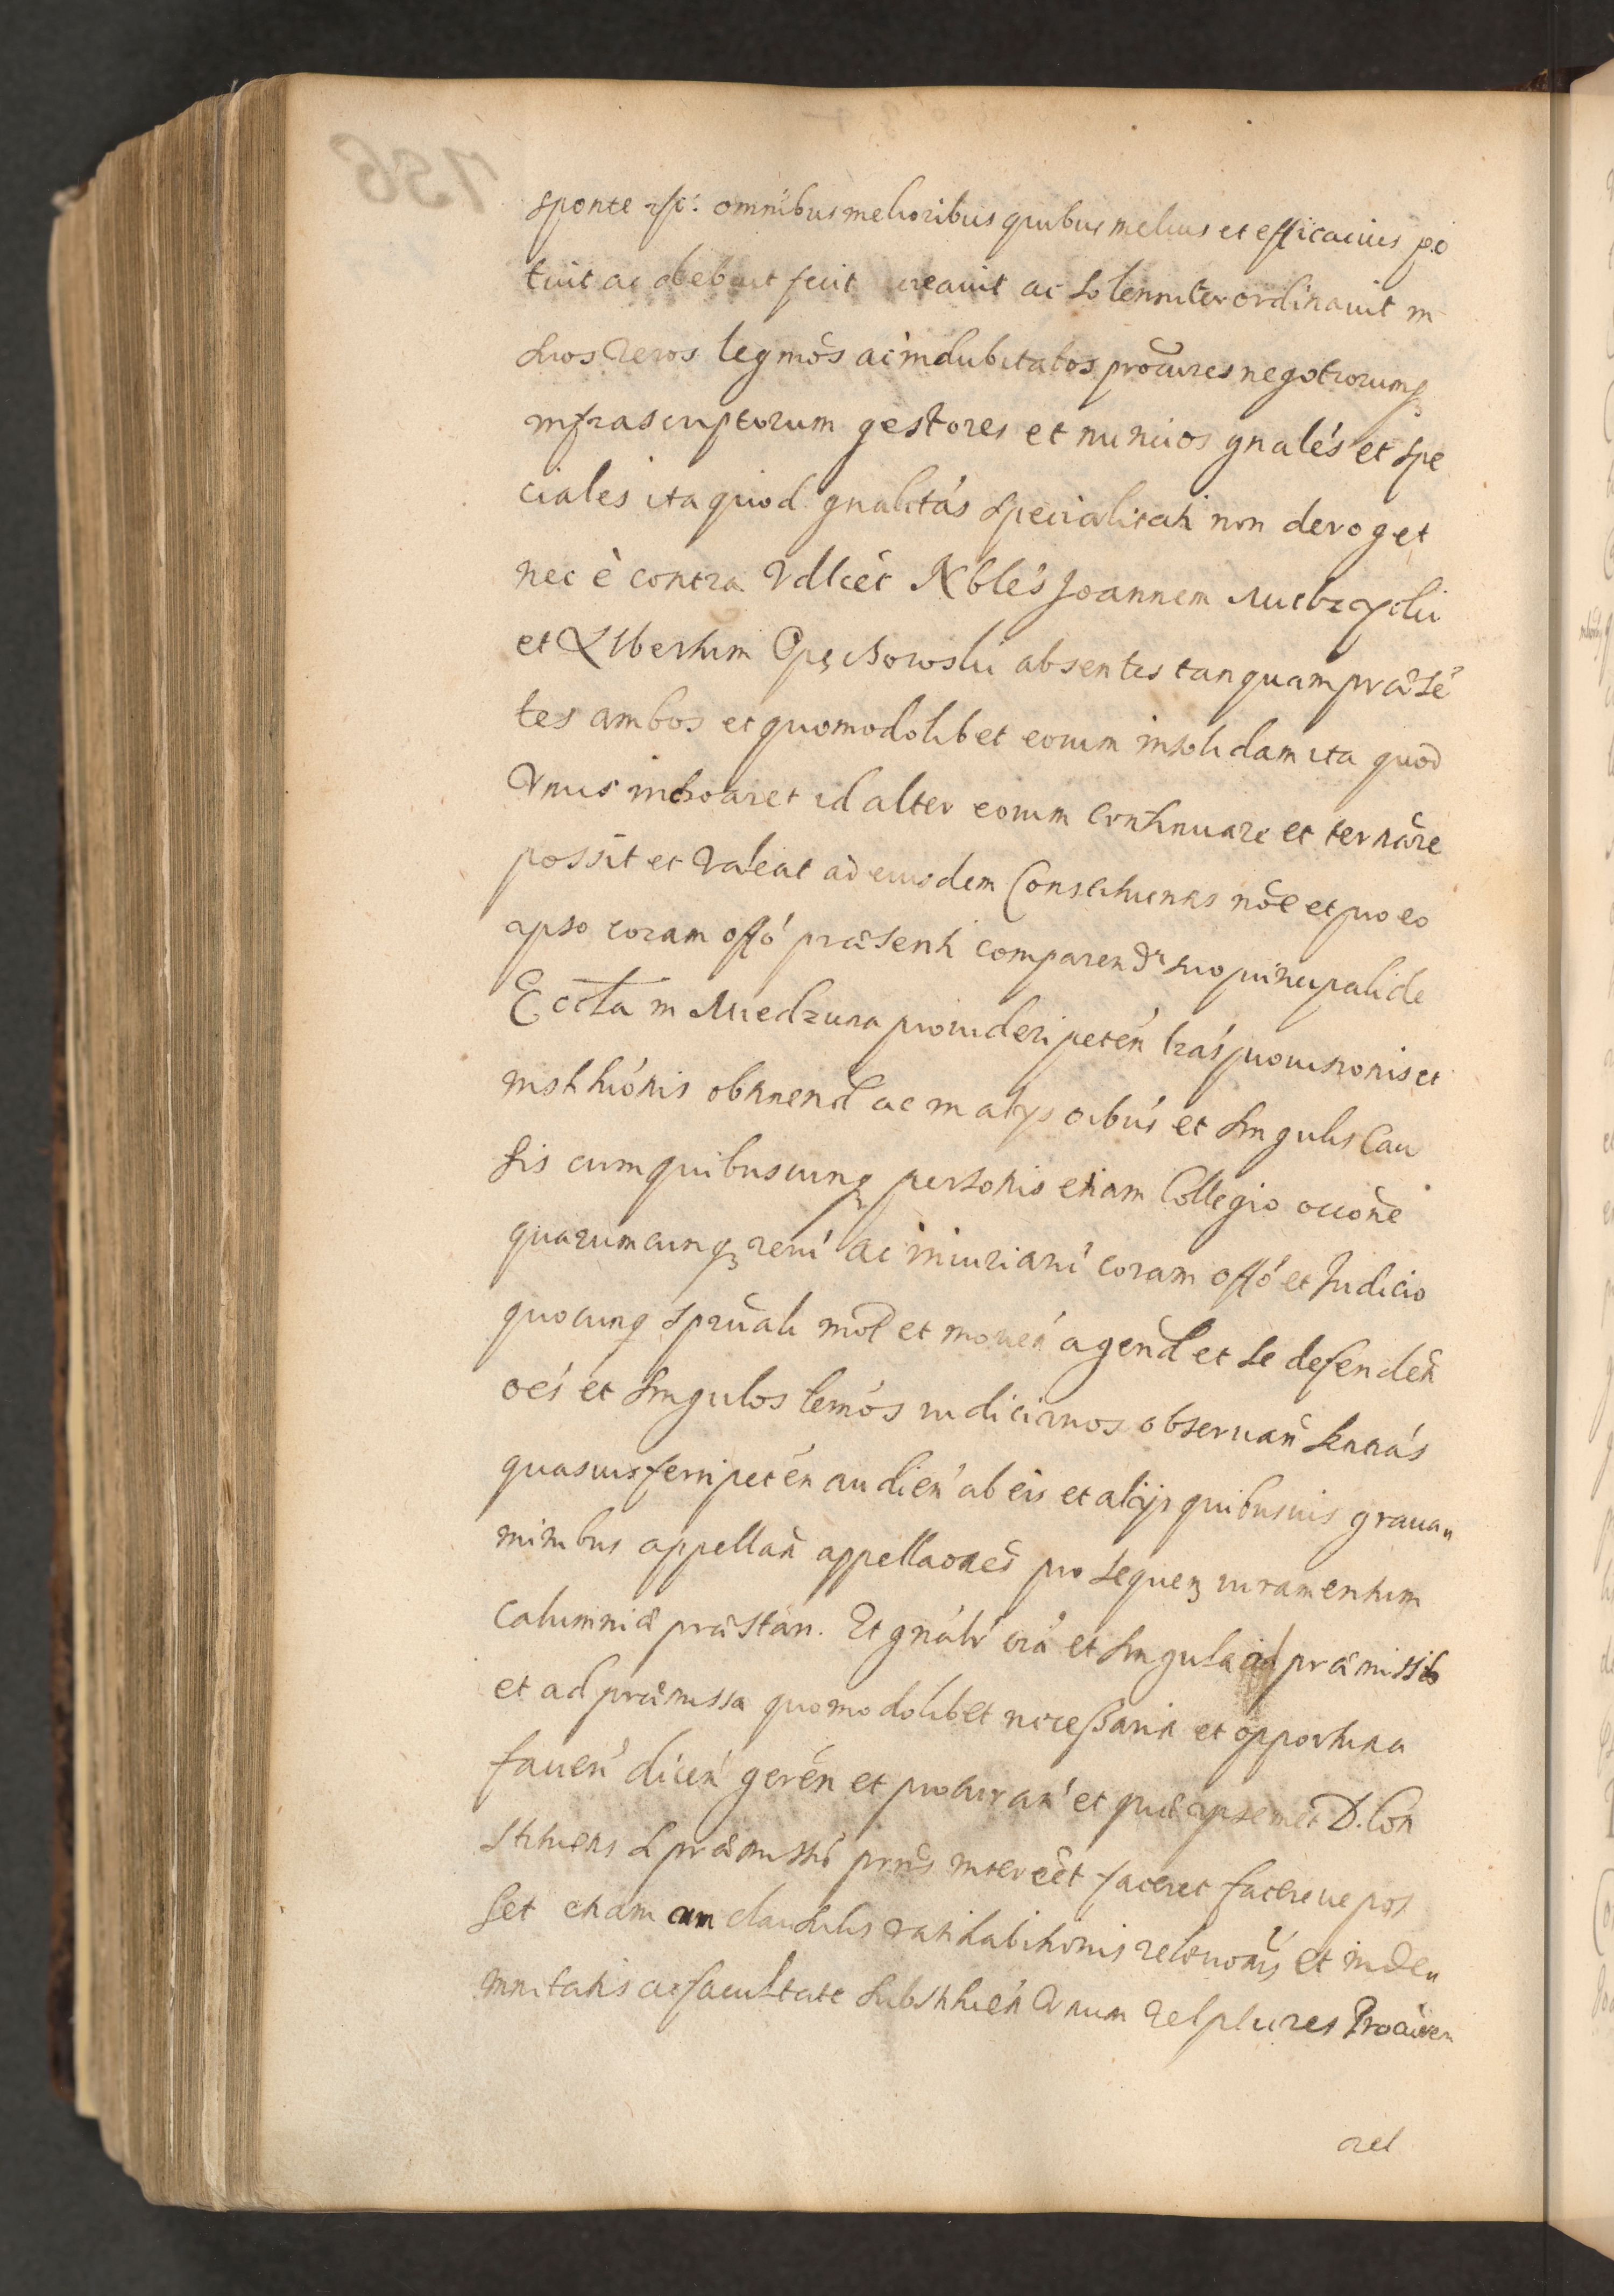 sponte etc: omnibus melioribus quibus melius et efficacius po
tuit ac debuit fecit creauit ac solenniter ordinauit in
suos veros legmos ac indubitatos procures negotiorumq
infrascriptorum gestores et nuncios gnales et spe
ciales ita quod gnalitas specialitati non deroget
nec è contra Vdlicet Nobles Joannem
et Albertum absentes tanquam præsē
tes ambos et quomodolibet eorum insolidam ita quod
Vnus inchoaret id alter eorum continuare et ternare
possit et valeat ad eiusdem Constituentis noe et pro eo
ipso coram offo præsenti comparend suo principali de
Eccla in Miedzna prouideri peten lras prouisionis et
instituonis obtinend ac in alijs oibus et singulis Cau
sis cum quibuscunq personis etiam Collegio occone
quarumcunq reru ac iniuriaru coram offo et Judicio
quocunq spruali mot et mouen agend et se defenden
oes et singulos temos iudiciarios obseruan sentias
quasuis ferri peten audien ab eis et alijs quibusuis graua
minibus appellan appellaones prosequen iuramentum
calumniæ præstan. Et gnalr oia et singula præmissis
et ad præmissa quomodolibet necessaria et opportuna
facien dicen geren et procuran et quæ ipsemet D. Con
stituens si præmissis prns intereet faceret facereue pos
set etiam cum clausulis ratihabitionis releuonis et inde
mnitatis ac facultate substituen Vnum vel plures Procuren
vel